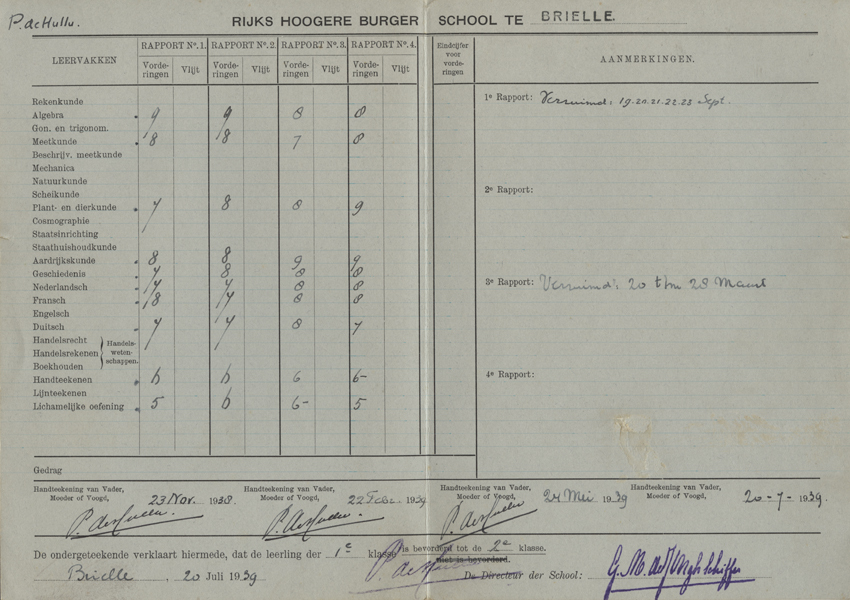 P. de Hullu.
RIJKS HOOGERE BURGER SCHOOL TE BRIELLE.
LEERVAKKEN RAPPORT No. 1. RAPPORT No. 2. RAPPORT No. 3. RAPPORT No. 4. Eindcijfer voor vorde-ringen AANMERKINGEN.
Vorde-ringen Vlijt Vorde-ringen Vlijt Vorde-ringen Vlijt Vorde-ringen Vlijt
Rekenkunde
1e Rapport: Verzuimd: 19.20.21.22.23 Sept.
Algebra 9 9 8 8
Gon. en trigonom.
Meetkunde 8 8 7 8
Beschrijv. meetkunde
Mechanica
Natuurkunde
2e Rapport:
Scheikunde
Plant- en dierkunde 7 8 8 9
Cosmographie
Staatsinrichting
Staathuishoudkunde
Aardrijkskunde 8 8 9 9
Geschiedenis 7 8 8 8
3e Rapport: Verzuimd: 20 t/m 28 Maart
Nederlandsch 7 7 8 8
Fransch 8 7 8 8
Engelsch
Duitsch 7 7 8 7
Handelsrecht
Handelsrekenen
Boekhouden
Handels-
weten-
schappen.
4e Rapport:
Handteekenen 6 6 6 6-
Lijnteekenen
Lichamelijke oefening 5 6 6- 5
Gedrag
Handteekening van Vader, Moeder of Voogd, 23 Nov. 1938
Handteekening van Vader, Moeder of Voogd, 22 Febr. 1939
Handteekening van Vader, Moeder of Voogd, 24 Mei 1939
Handteekening van Vader, Moeder of Voogd, 20-7-1939.
P. de Hullu. P. de Hullu. P. de Hullu
De ondergeteekende verklaart hiermede, dat de leerling der 1e klasse is bevorderd tot de 2e klasse.
niet is bevorderd.
Brielle, 20 Juli 1939 P. de Hullu De Directeur der School: